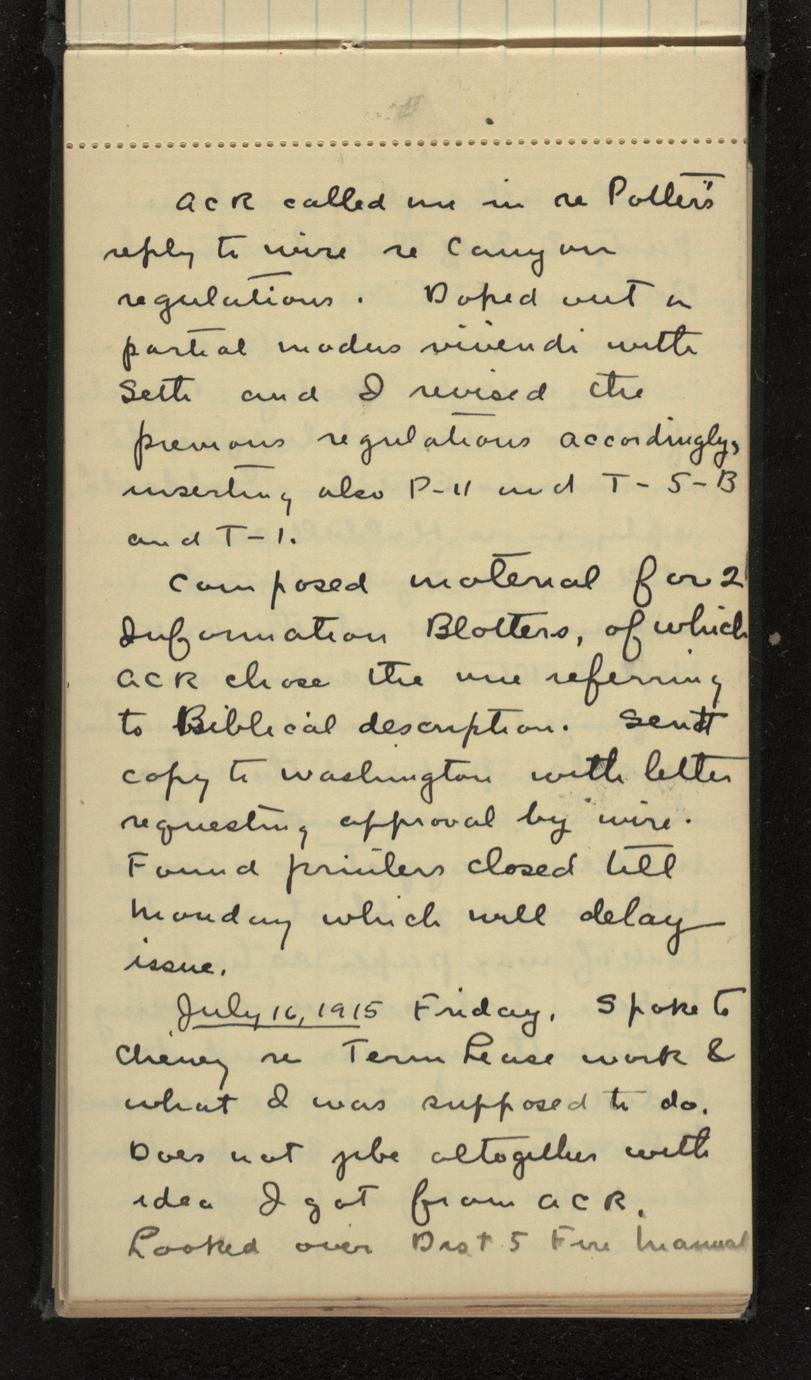 ACR called me in re Potter's
reply to wire re Canyon
regulations. Doped out a
partial modus vivendi with
Seth and I revised the
previous regulations accordingly,
inserting also P-11 and T-5-B
and T-1.
Composed material for 2
Information Blotters, of which
ACR chose the one referring
to Biblical description. Sent
copy to Washington with letter
requesting approval by wire.
Found printers closed till
Monday which will delay
issue.
July 16, 1915 Friday. Spoke to
Cheney re Term Lease work &
what I was supposed to do.
Does not jibe altogether with
idea I got from ACR.
Looked over Dist 5 Fire Manual